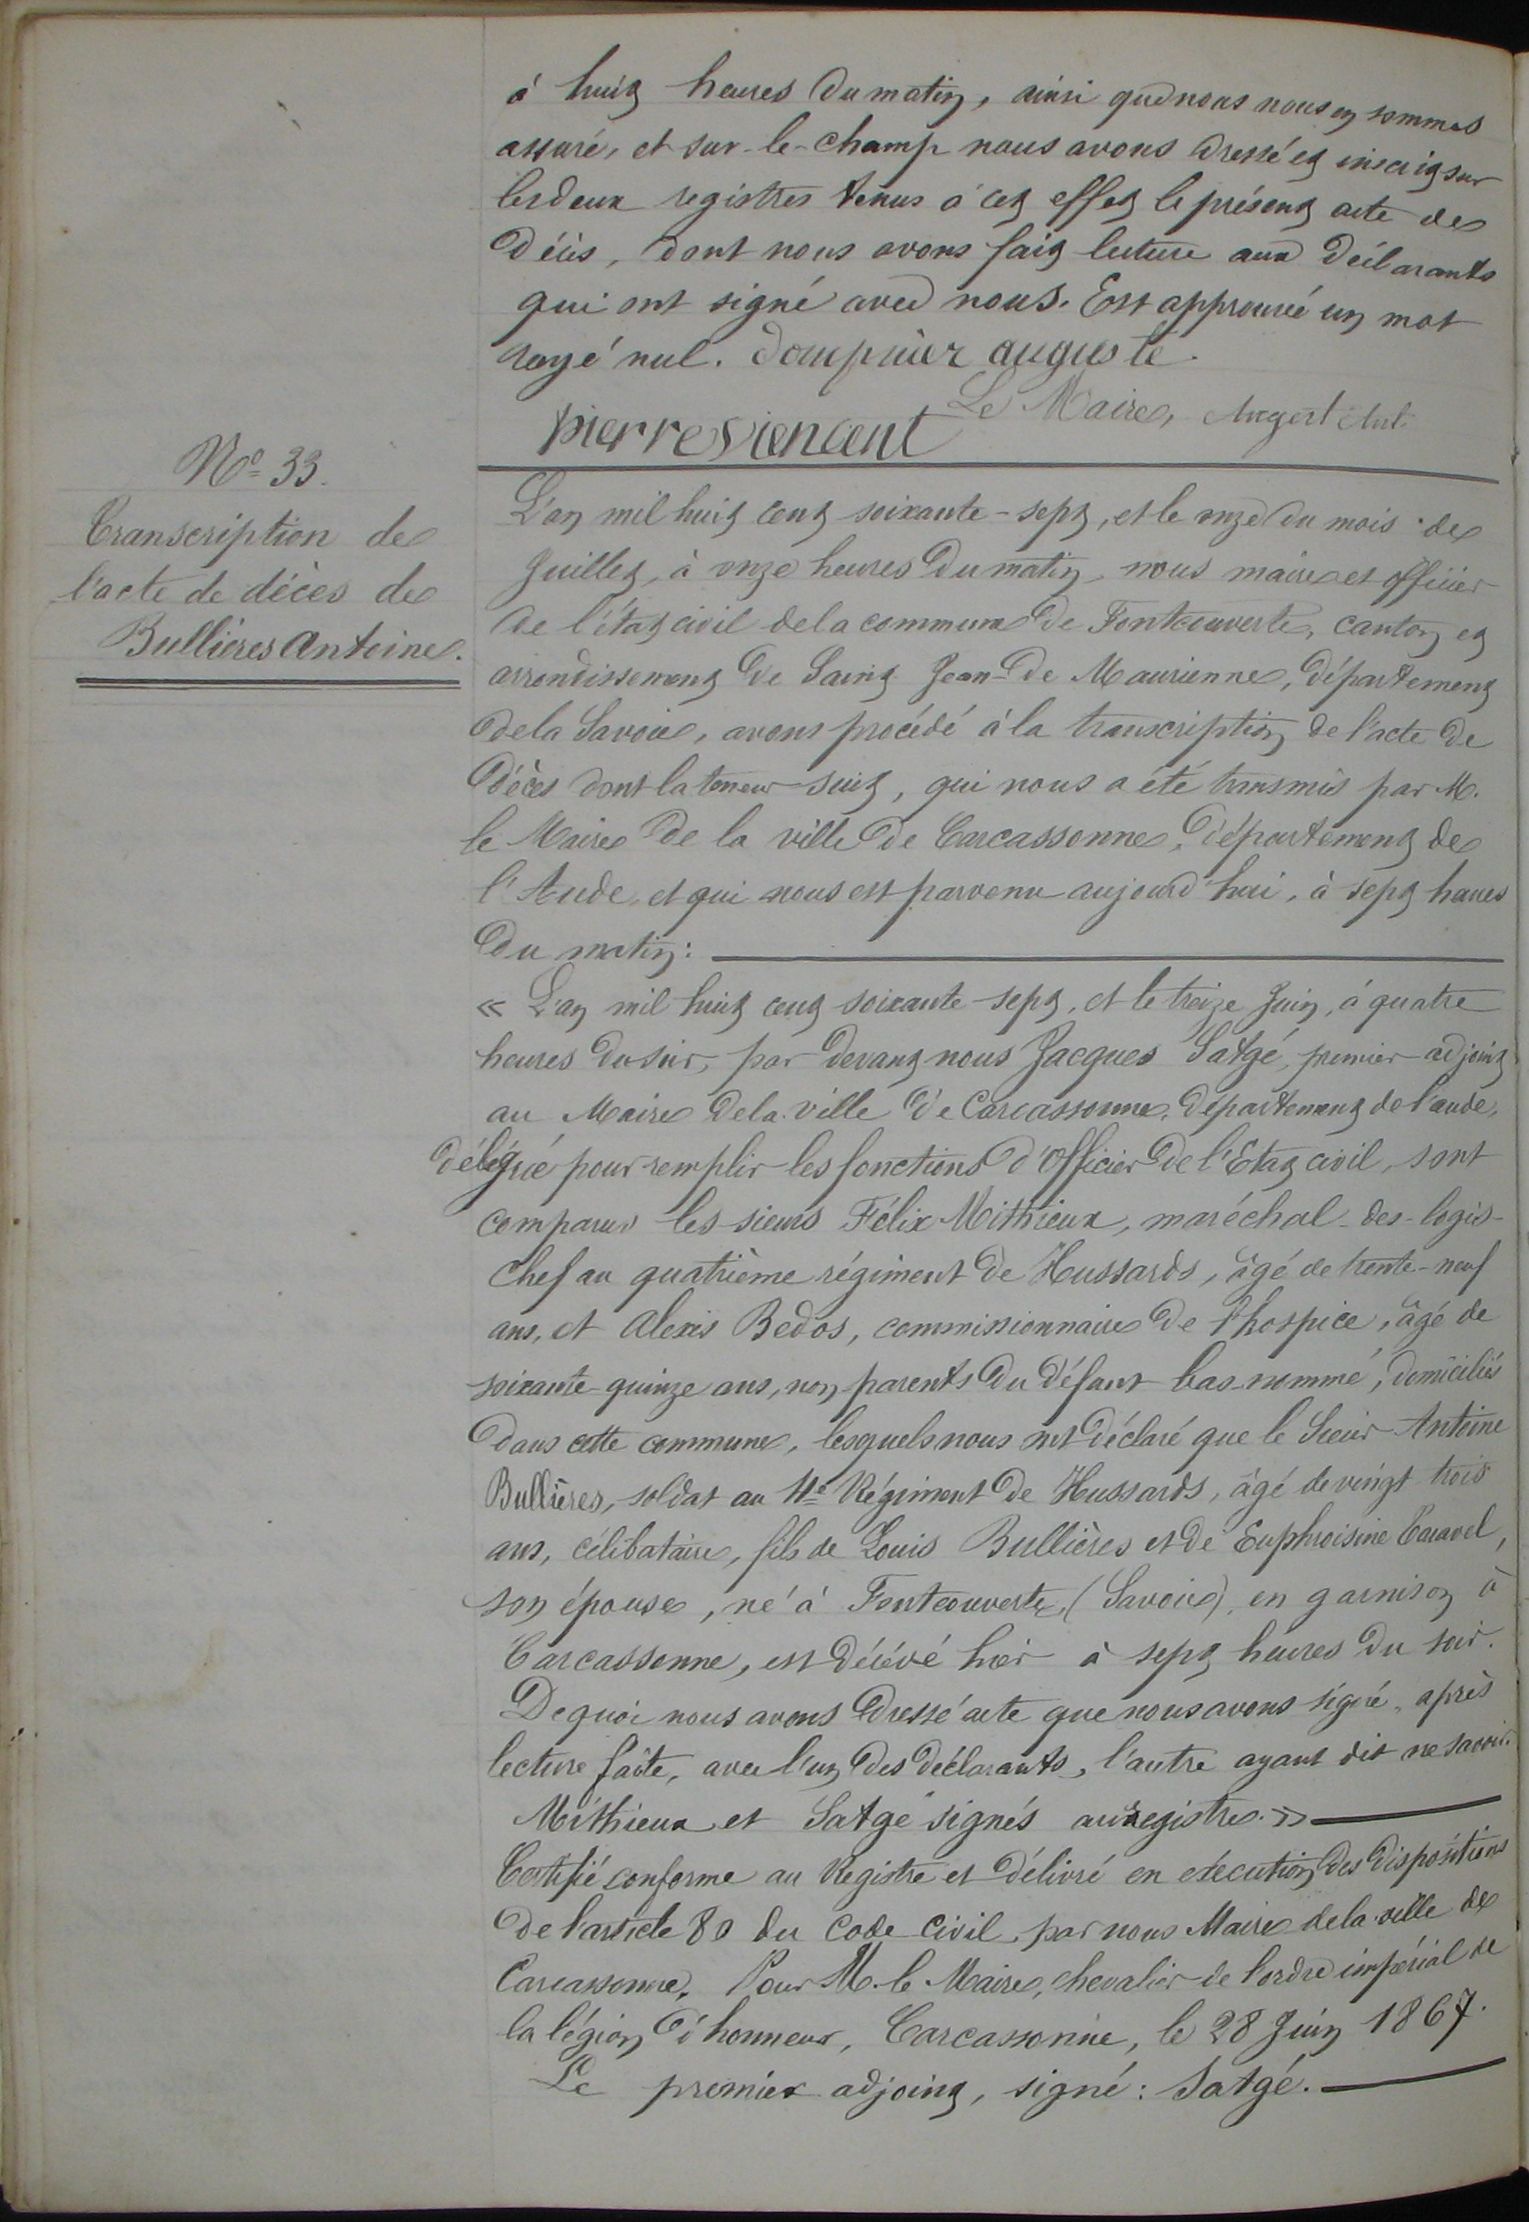 à huit heures du matin, ainsi que nous nous en sommes
assuré, et sur-le-champ nous avons dressé et inscrit sur
les deux registres tenus à cet effet le présent acte de
décès, dont nous avons fait lecture aux déclarants
qui ont signé avec nous. Est approuvé un mot
rayé nul. Dompnier auguste.
Le Maire, Angert Ant.
pierre viencent
No 33.
Transcription de
l'acte de décès de
Bullières Antoine.
L'an mil huit cent soixante-sept, et le onze du mois de
Juillet, à onze heures du matin, nous maire et officier
de l'état civil de la commune de Fontcouverte, canton et
arrondissement de Saint Jean-de Maurienne, département
de la Savoie, avons procédé à la transcription de l'acte de
décès dont la teneur suit, qui nous a été transmis par M.
le Maire de la ville de Carcassonne, département de
l'Aude, et qui nous est parvenu aujourd'hui, à sept heures
du matin:
« L'an mil huit cent soixante-sept, et le treize Juin, à quatre
heures du soir, par devant nous Jacques Satgé, premier adjoint
au Maire de la ville de Carcassonne, département de l'aude,
délégué pour remplir les fonctions d'Officier de l'Etat civil, sont
comparus les sieurs Félix Mithieux, maréchal-des-logis-
chef au quatrième régiment de Hussards, âgé de trente-neuf
ans, et Alexis Bedos, commissionnaire de l'hospice, âgé de
soixante-quinze ans, non parents du défunt bas-nommé, domiciliés
dans cette commune, lesquels nous ont déclaré que le Sieur Antoine
Bullières, soldat au 4e Régiment de Hussards, âgé de vingt trois
ans, célibataire, fils de Louis Bullières et de Euphroisine Taravel,
son épouse, né à Fontcouverte, (Savoie), en garnison à
Carcassonne, est décédé hier à sept heures du soir.
De quoi nous avons dressé acte que nous avons signé, après
lecture faite, avec l'un des déclarants, l'autre ayant dit ne savoir.
Mithieux et Satgé signés au registre. »
Certifié conforme au Registre et délivré en exécution des dispositions
de l'article 80 du Code Civil, par nous Maire de la ville de
Carcassonne. Pour M. le Maire, chevalier de l'ordre impérial de
la légion d'honneur, Carcassonne, le 28 Juin 1867.
Le premier adjoint, signé: Satgé.